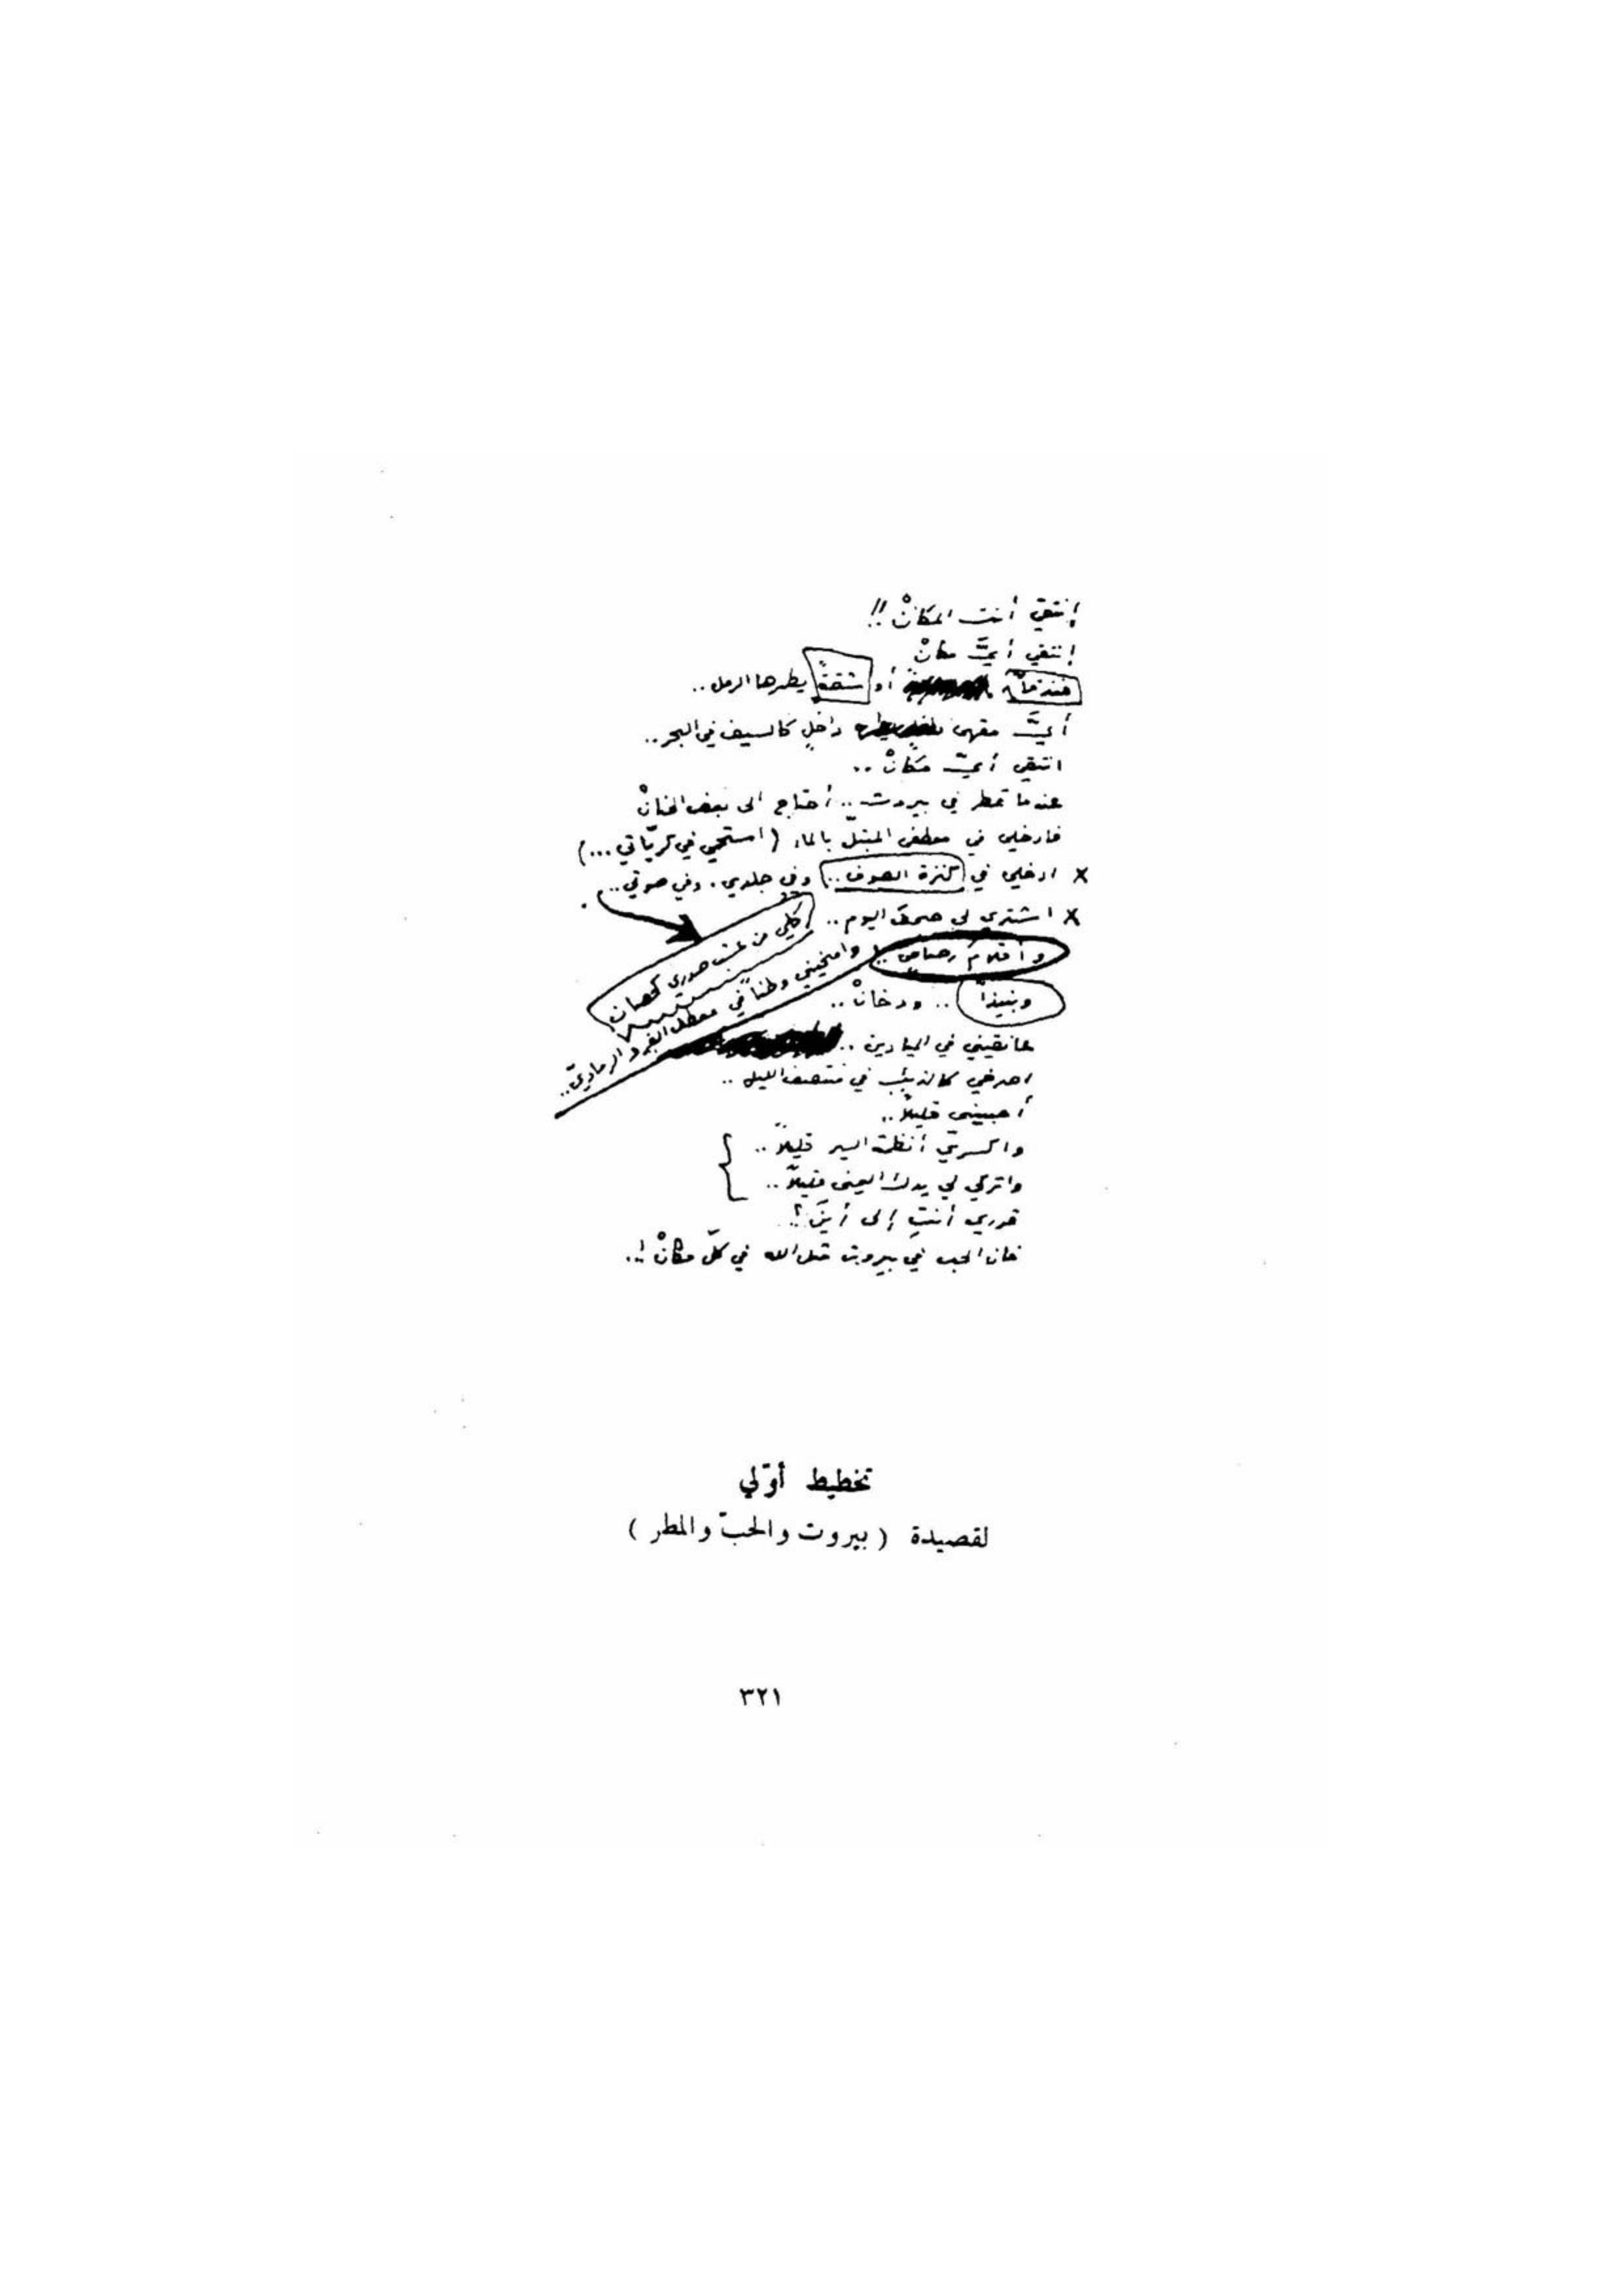 إنتقي أنت المكانْ!!
إنتقي أيَّ مكانْ
أو شقةً يطمرها الرمل..
أيَّ مقهىً داخلٍ كالسيف في البحر..
انتقي أيَّ مكانْ..
عندما تمطر في بيروت.. أحتاج الى بعض الحنانْ
فادخلي في معطفي المبتلّ بالماء (استحمي في كرياتي...)
× ادخلي في كنزة الصوف.. وفي جلدي. وفي صوتي..
كلي من عشب صدري كحصان
× اشتري لي صحف اليوم..
وامنحيني وطناً في معطف الفرو الرماديّ..
وأقلامَ رصاص..
ونبيذاً.. ودخانْ..
عانقيني في الميادين..
اصرخي كالذئب في منتصف الليل..
أحبيني قليلاً..
واكسري أنظمة السير قليلاً..
واتركي لي يدك اليمنى قليلاً..
قدري أنتِ إلى أينَ؟
فان الحب في بيروت مثل الله في كلّ مكانْ!..
تخطيط أوّلي
لقصيدة (بيروت والحبّ والمطر)
٣٢١